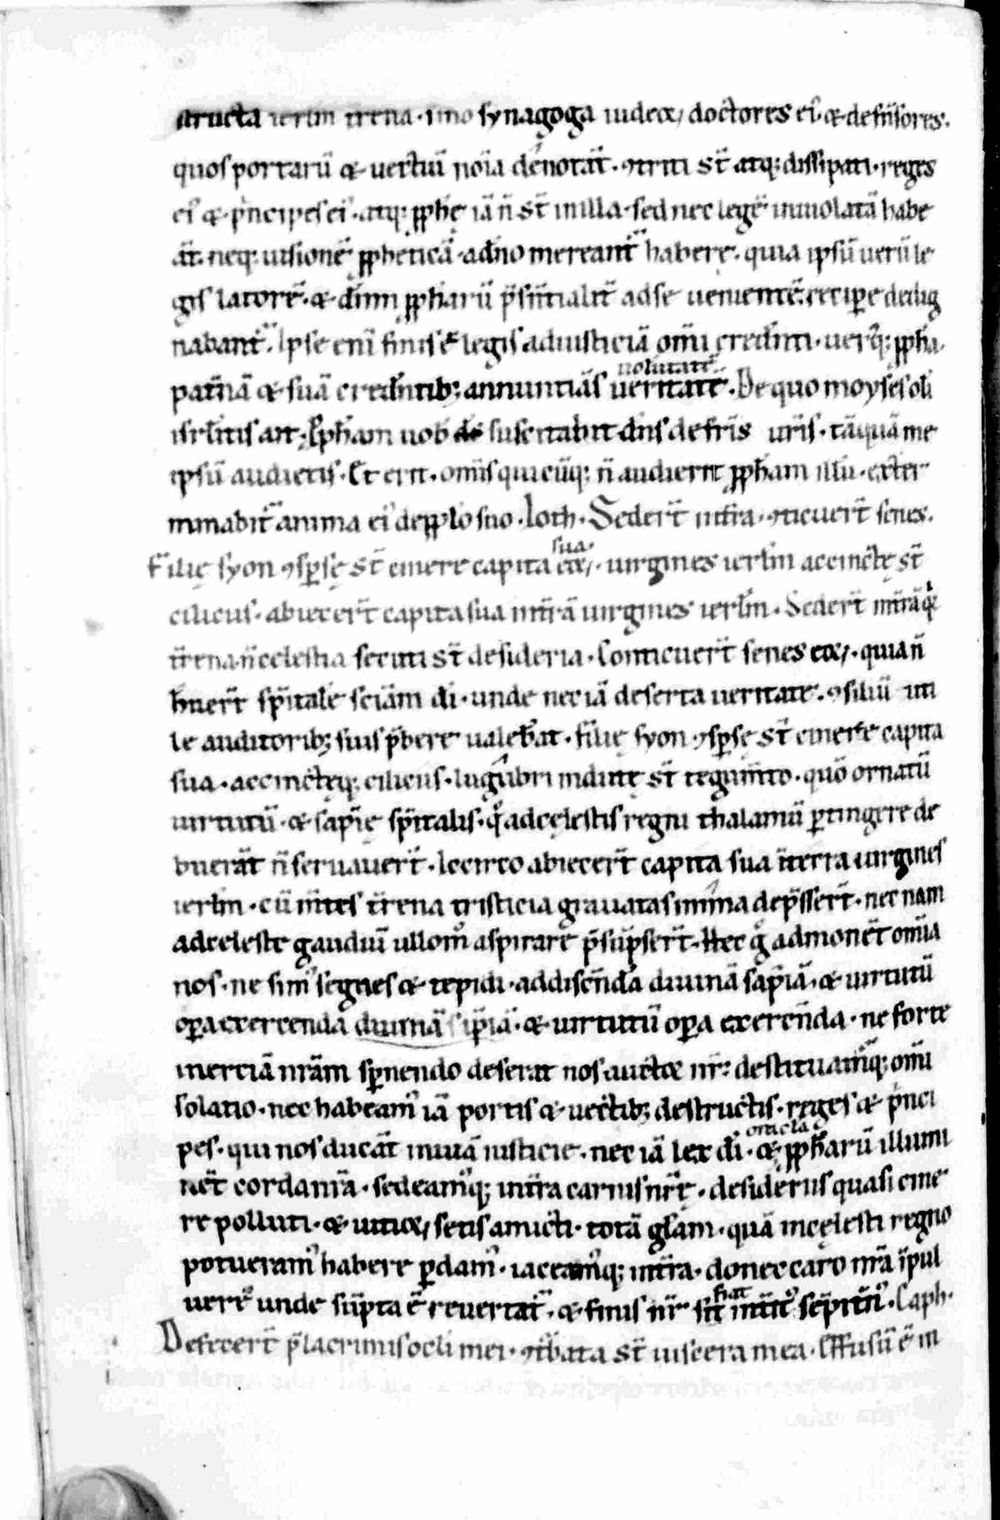 structa ierl̄m t̄rena · imo synagoga iudeoꝝ, doctores eiꝰ · ⁊ defensores.
quos portarū ⁊ vectiū nōia denotāt · ꝯtriti st̄ atq; dissipati · reges
eiꝰ ⁊ p̄ncipes eiꝰ · atq; ꝓphę iā n̄ st̄ in illa · sed nec legē inmolatā habe
āt · neq; visionē ꝓpheticā · a dn̄o mereant᷑ habere · quia ipsū verū le
gis latorē · ⁊ dn̄m ꝓpharū p̄sentialit᷑ ad se venientē · recipe dedig
nabant᷑. Ipse enī finis ē legis ad iusticiā om̄i credenti · verq; ꝓpha ·
pat̄nā ⁊ suā credentib; annuntiās volūtatē veritatē · De quo moyses oli
isrl̄itis ait · Ꝓpham vob de suscitabit dn̄s de fr̄is vr̄is · tāquā me
ipsū audietis · Et erit · om̄is quicūq; n̄ audierit ꝓpham illū · exter
minabit᷑ anima eiꝰ de pplo suo · Ioth · Seder̄t in t̄ra · ꝯticuer̄t senes.
Filię syon ꝯsp̄sę st̄ cinere capita sua eoꝝ, · virgines ierl̄m accinctę st̄
ciliciis · abiecer̄t capita sua in t̄rā virgines ierl̄m · Seder̄t in t̄ra q̄
t̄rena n̄ celestia secuti st̄ desideria · Conticuer̄t senes eoꝝ, · quia n̄
h̄uer̄t sp̄italē sciam di · unde nec iā deserta veritate · ꝯsiliū uti
le auditorib; suis p̄bere valebāt · filię syon ꝯsp̄sę st̄ cinere capita
sua · accinctęq; ciliciis · lugubri indutę st̄ tegum̄to · quō ornatū
virtutū · ⁊ sapię sp̄italis · q̄ ad cęlestis regni thalamū ꝑtingere de
buerāt n̄ servaver̄t · Iccirco abiecer̄t capita sua in t̄ra virgines
ierl̄m · cū m̄tes t̄rena tristicia gravatas in ima dep̄sser̄t · nec nam
ad celeste gaudiū ullom° aspirare p̄supser̄t · Hec g° admonēt om̄ia
nos · ne simꝰ segnes ⁊ tepidi · ad discendā divinā sapiā · ⁊ virtutū
oꝑa exercenda divinā sap̄iā · ⁊ virtutū oꝑa exercēda · ne forte
inerciā nr̄am sꝑnendo deserat nos auctor nr̄ · destituamꝰq; om̄i
solatio · nec habeamꝰ iā portis ⁊ vectib; destructis · reges ⁊ p̄nci
pes · qui nos ducāt in viā iusticie · nec iā lex di · ⁊ oracla ꝓpharū illumi
nēt corda nr̄a · sedeamꝰq; in t̄ra carnis nr̄ę · desideriis quasi cine
re polluti · ⁊ vitioꝝ, setis amicti · totā gl̄am · quā in cęlesti regno
potueramꝰ habere ꝑdamꝰ · iaceamꝰq; in t̄ra · donec caro nr̄a ī pul
verē unde sūpta ē revertat᷑ · ⁊ finis nr̄ fiat · Caph ·
Defecer̄t p̄ lacrimis ocl̄i mei · ꝯt̄bata st̄ viscera mea · Effusū ē in